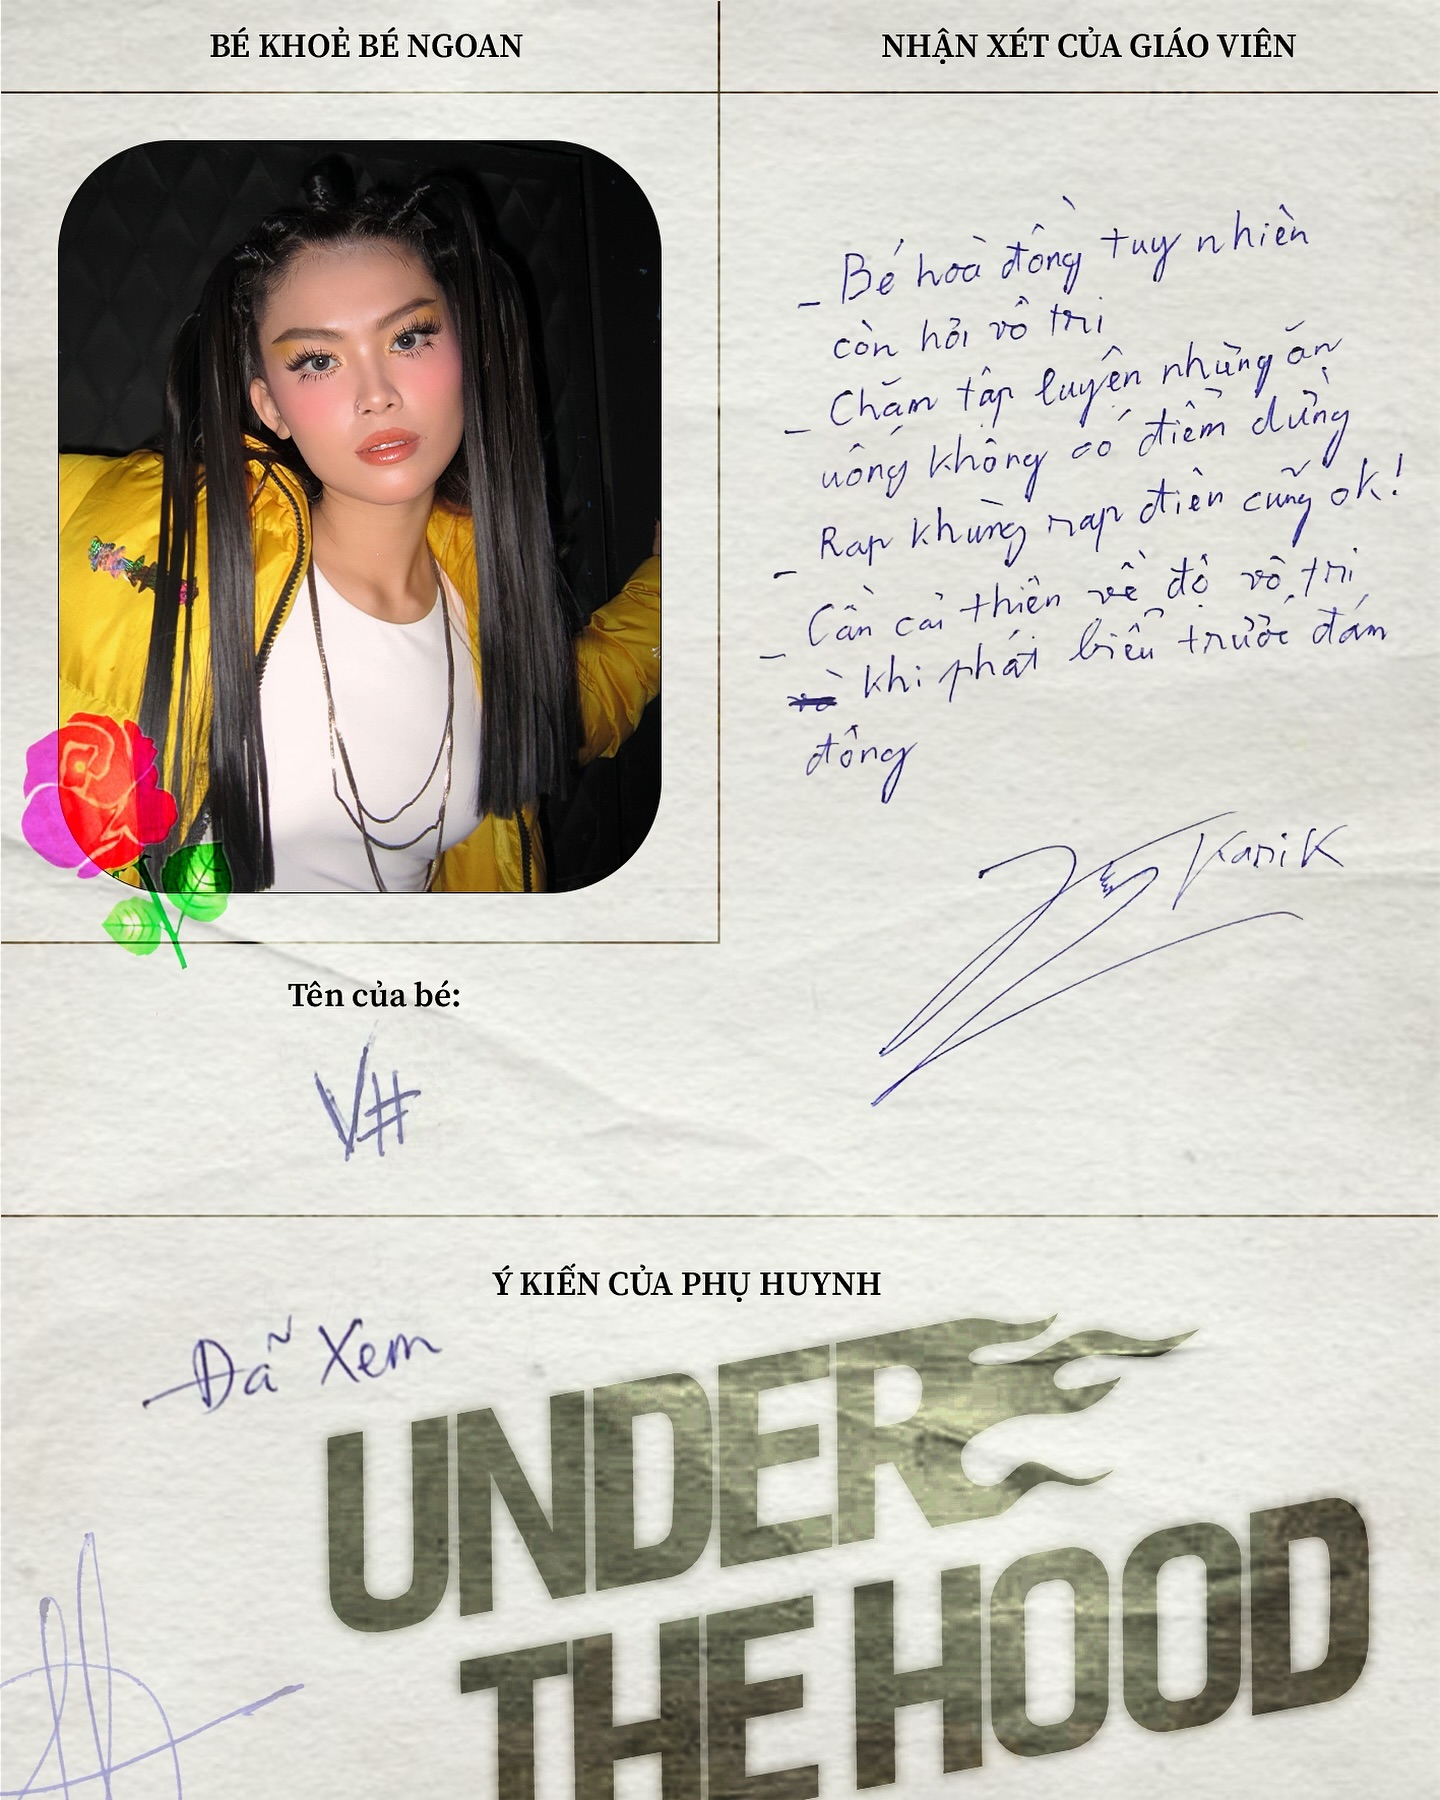 BÉ KHOẺ BÉ NGOAN
NHẬN XÉT CỦA GIÁO VIÊN
- Bé hoà đồng tuy nhiên
còn hỏi vô tri
- Chăm tập luyện nhưng ăn
uống không có điểm dừng
- Rap khùng rap điên cũng ok!
- Cần cải thiện về độ vô tri
khi phát biểu trước đám
đông
KariK
Tên của bé:
V#
Ý KIẾN CỦA PHỤ HUYNH
Đã Xem
UNDER
THE HOOD